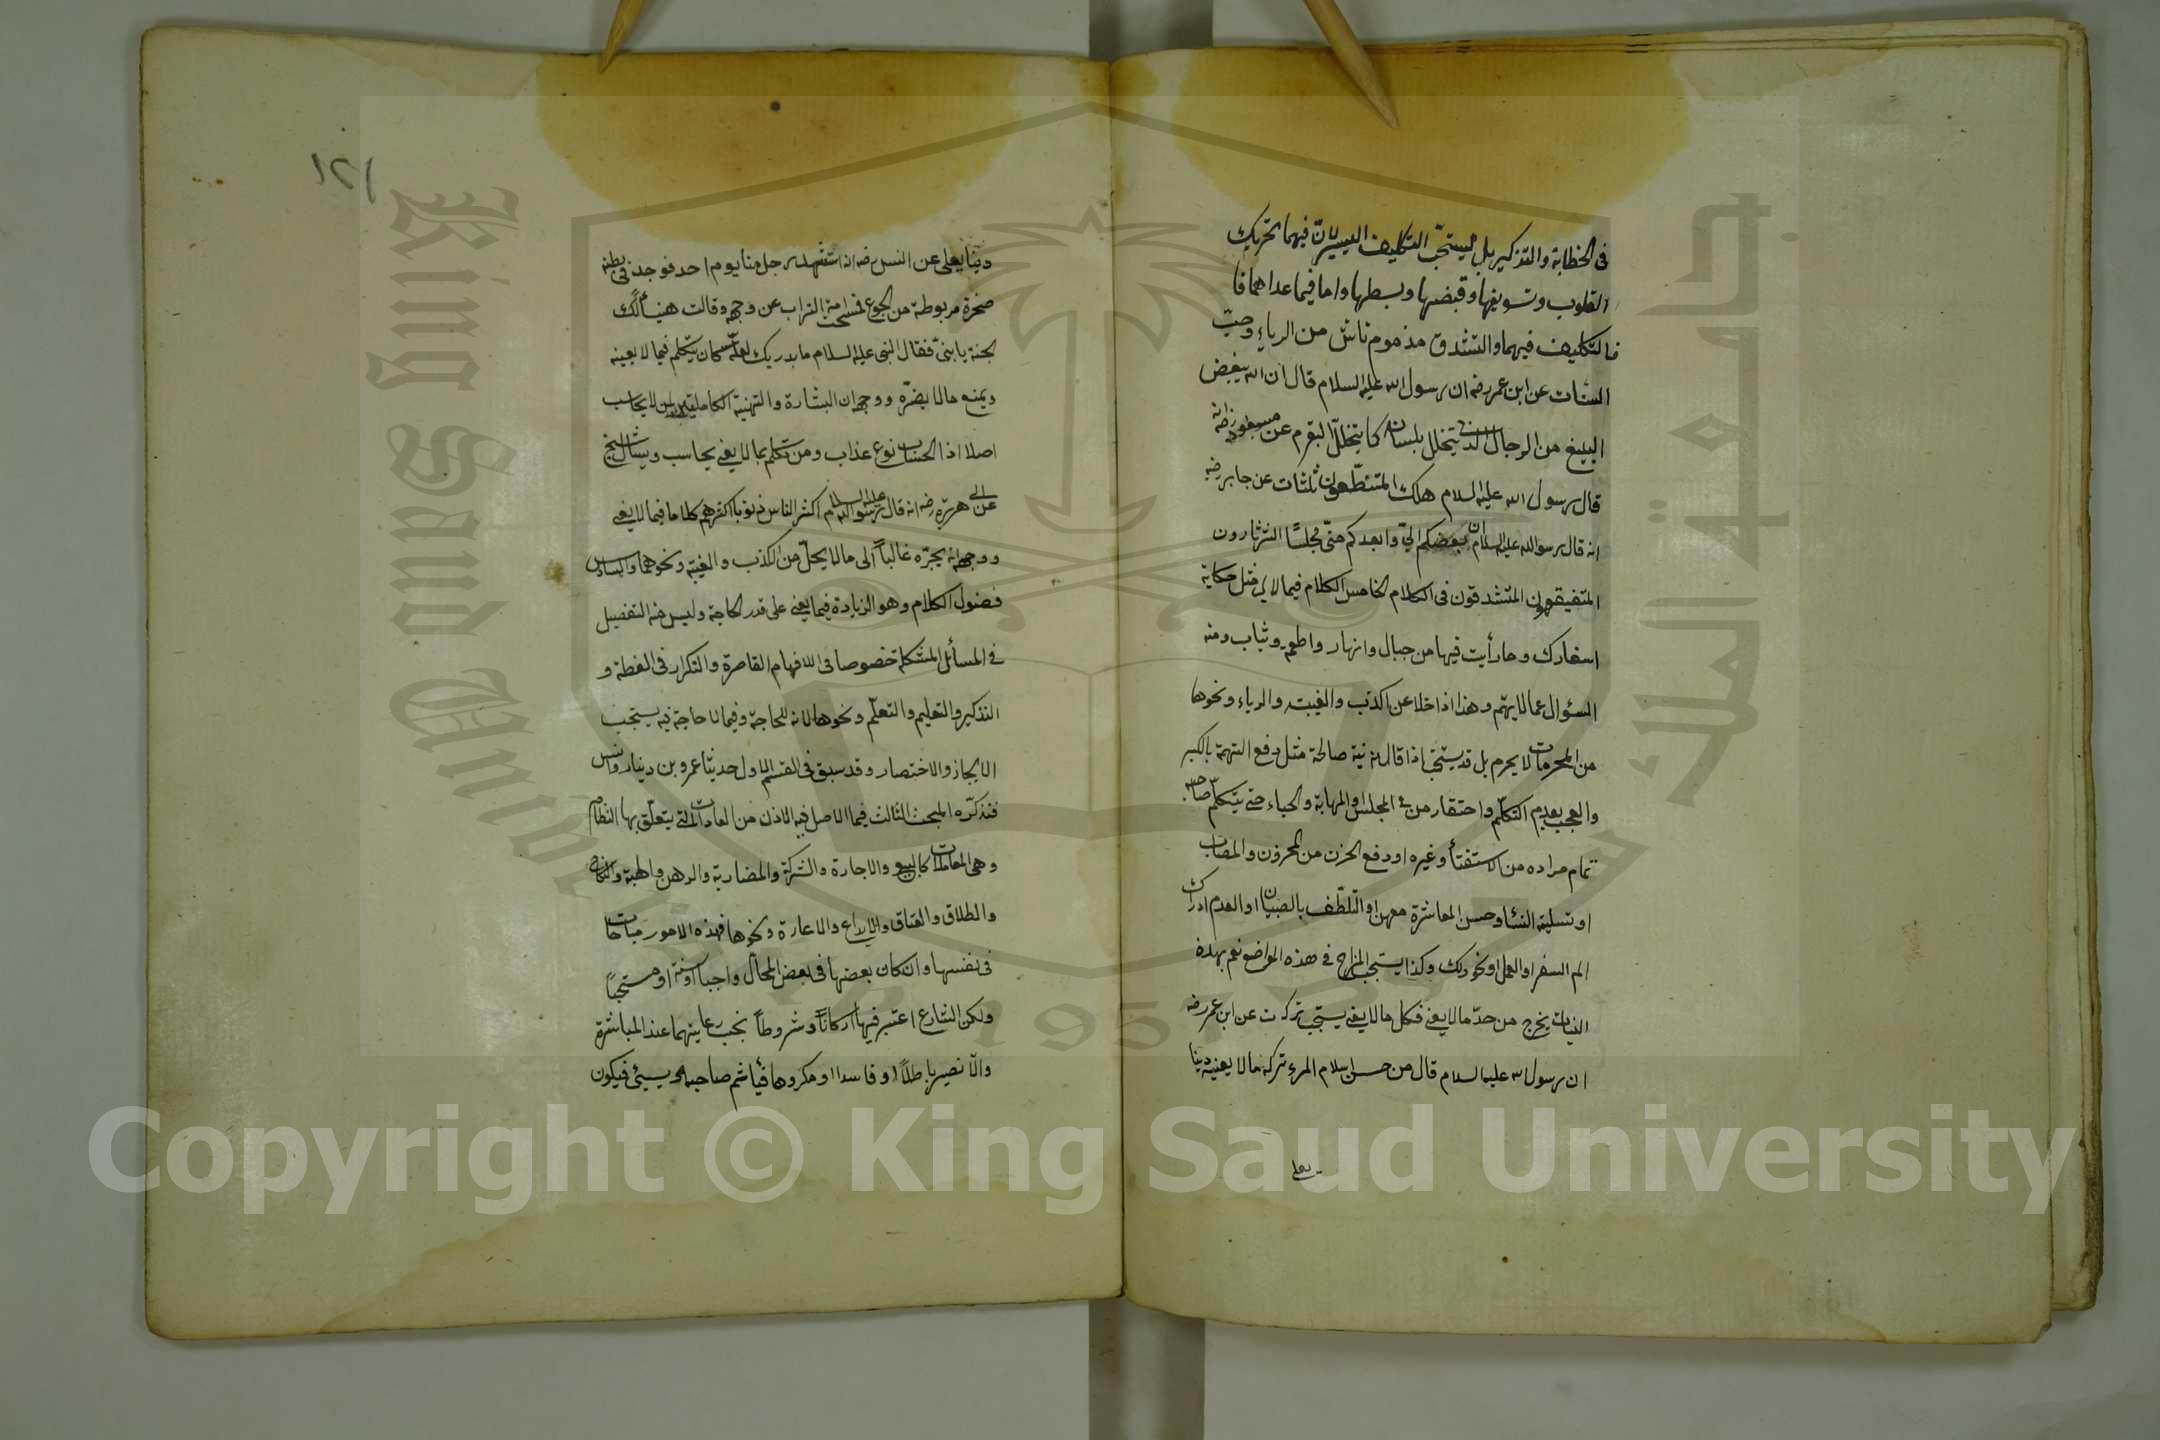 في الخطابة والتذكير بل يستحب التكليف اليسير لان فيهما تحريك
القلوب وتسويقها وقبضها وبسطها واما فيما عداهما فا
فالتكليف فيهما والتشدق مذموم ناش من الرياء وحب
الثنات عن ابن عمر رضه ان رسول الله عليه السلام قال ان الله يبغض
البليغ من الرجال الذي يتخلل بلسانه كما يتخلل البقرم عن مسعود رضه انه
قال رسول الله عليه السلام هلك المتنطعون ثلثات عن جابر رضه
انه قال رسول الله عليه السلام ان بغضكم الي وابعدكم مني مجلسا الثرثارون
المتفيقهون المتشدقون في الكلام الخامس الكلام فيما لا يعني مثل حكاية
اسفارك وما رأيت فيها من جبال وانهار واطعمة وثياب ومنه
السؤال عما لا يهم وهذا اذا خلا عن الكذب والغيبة والرياء ونحوها
من المحرمات لا يحرم بل قد يستحب اذا قال به نية صالحة مثل دفع التهمة بالكبر
والعجب بعدم التكلم واحتقار من في المجلس او المهابة والحياء حتى يتكلم صاحبه
تمام مراده من الاستفتأ وغيره او دفع الحزن من المحزون والمصاب
او تسلية النساء وحسن المعاشرة معهن او التلطف بالصبيان او لعدم ادراك
الم السفر او العمل او نحو ذلك وكذا يستحب المزاح في هذه المواضع نعم بهذه
النيات يخرج من حد ما لا يعني فكل ما لا يعني يستحب تركه ت عن ابن عمر رضه
ان رسول الله عليه السلام قال من حسن اسلام المرء تركه ما لا يعنيه دينا
يعلى
١٢١
دينا يعلى عن انس رضه انه استشهد رجل منا يوم احد فوجد في بطنه
صخرة مربوطة من الجوع فمسحت امه التراب عن وجهه وقالت هنيأ لك
الجنة يا بني فقال النبي عليه السلام ما يدريك لعله كان يتكلم فيما لا يعنيه
ويمنع ما لا يضره ووجه ان البشارة والتهنية الكاملتين لمن لا يحاسب
اصلا اذ الحساب نوع عذاب ومن تكلم بما لا يعني يحاسب ويسأل شيخ
عن ابي هريرة رضه انه قال رسول الله عليه السلام اكثر الناس ذنوبا اكثرهم كلاما فيما لا يعني
ووجهه انه يجره غالباً الى ما لا يحل من الكذب والغيبة ونحوهما والسادس
فضول الكلام وهو الزيادة فيما يعني على قدر الحاجة وليس منه التفصيل
في المسأئل المشكلة خصوصا في الافهام القاصرة والتكرار في العظة و
التذكير والتعليم والتعلم ونحوها لانه للحاجة وفيما لا حاجة فيه يستحب
الايجاز والاختصار وقد سبق في القسم الاول حديثا عمرو بن دينار وانس
فتذكره المبحث الثالث فيما الاصل فيه الاذن من العادات التي يتعلق بها النظام
وهي المعاملات كالبيع والاجارة والشركة والمضاربة والرهن والهبة والنكاح
والطلاق والعتاق والايداع والاعارة ونحوها فهذه الامور مباحات
في نفسها وان كان بعضها في بعض المحال واجبا او سنة او مستحباً
ولكن الشارع اعتبر فيها اركاناً وشروطاً تجب رعايتهما عند المباشرة
والا تصير باطلاً او فاسدا او مكروها فيأثم صاحبه ويسيئ فيكون
Copyright © King Saud University
King Saud University
1957
جامعة الملك